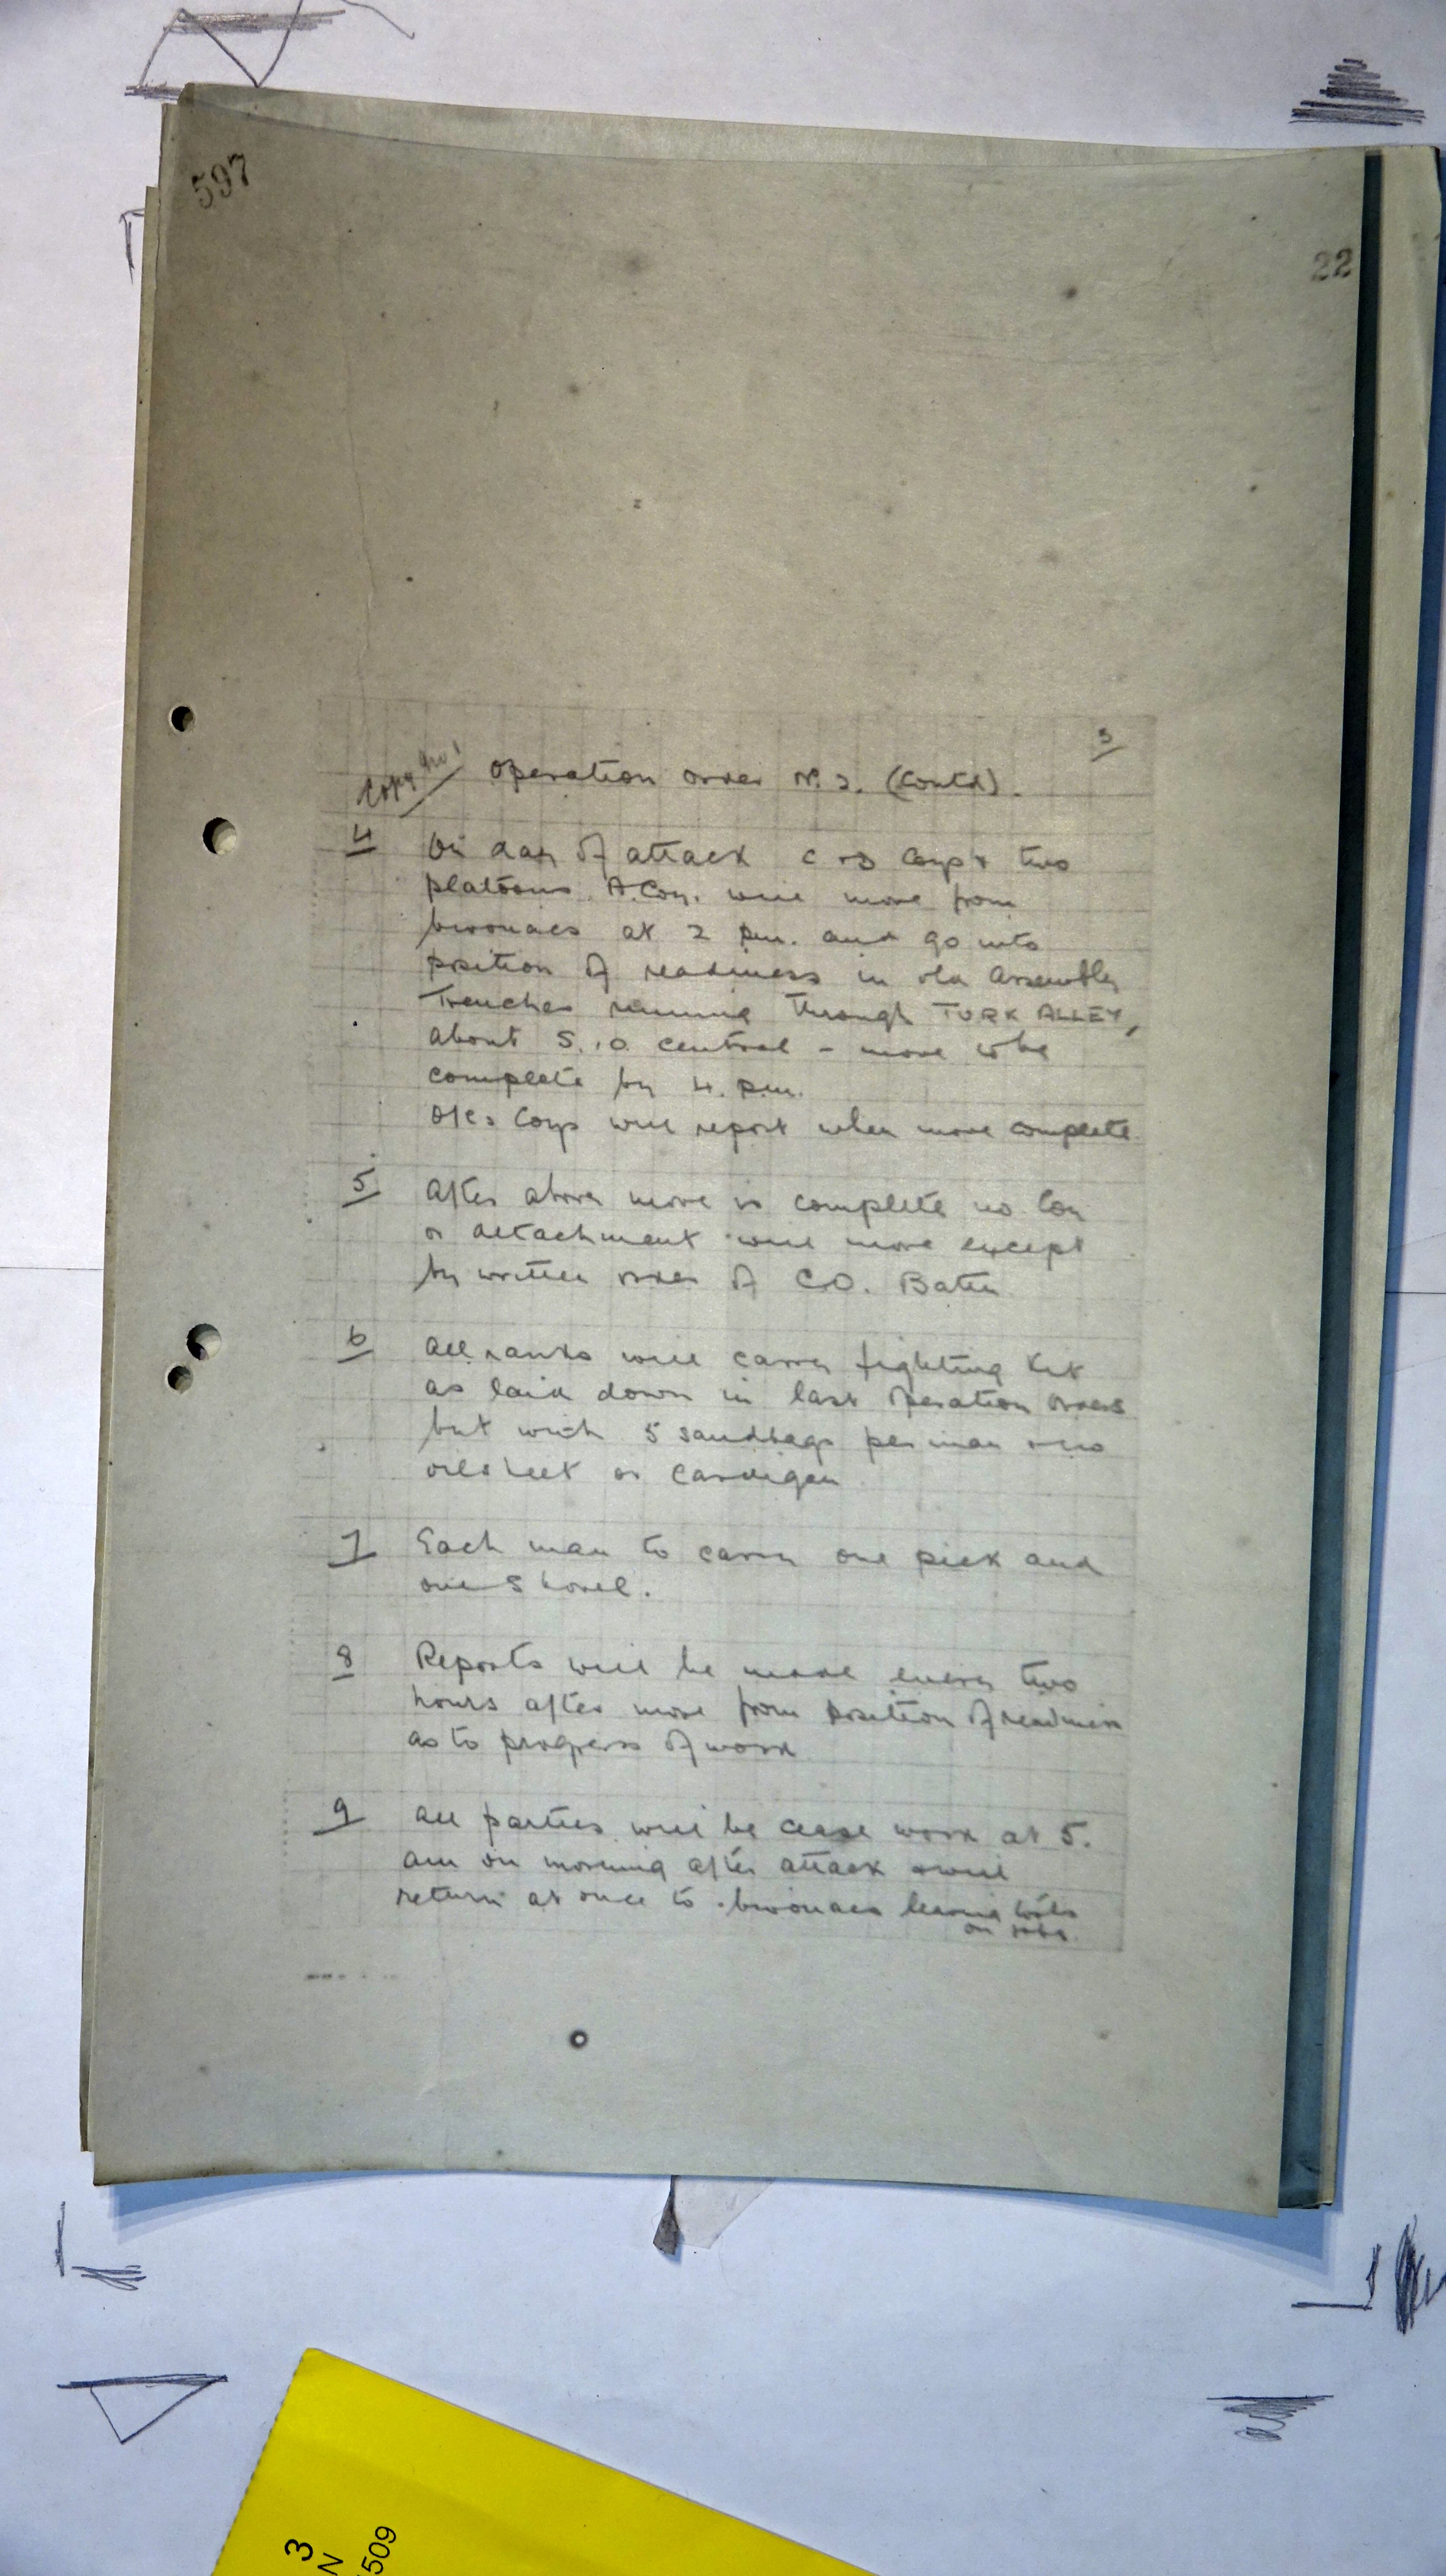 597
22
3
Copy No 1
Operation order No. 2. (Contd).
4 On day of attack C & D Coys & two
platoons A. Coy. will move from
bivouacs at 2 p.m. and go into
position of readiness in old Assembly
Trenches running through TURK ALLEY,
about S.10 central - move to be
complete by 4. p.m.
O/Cs Coys will report when move complete
5 After above move is complete no Coy
or detachment will move except
by written order of C.O. Battn
6 All ranks will carry fighting kit
as laid down in last operation orders
but with 5 sandbags per man & no
oilsheet or cardigan
7 Each man to carry one pick and
one shovel.
8 Reports will be made every two
hours after move from position of readiness
as to progress of work
9 All parties will be cease work at 5.
am on morning after attack & will
return at once to bivouacs leaving tools
on
3
N
509